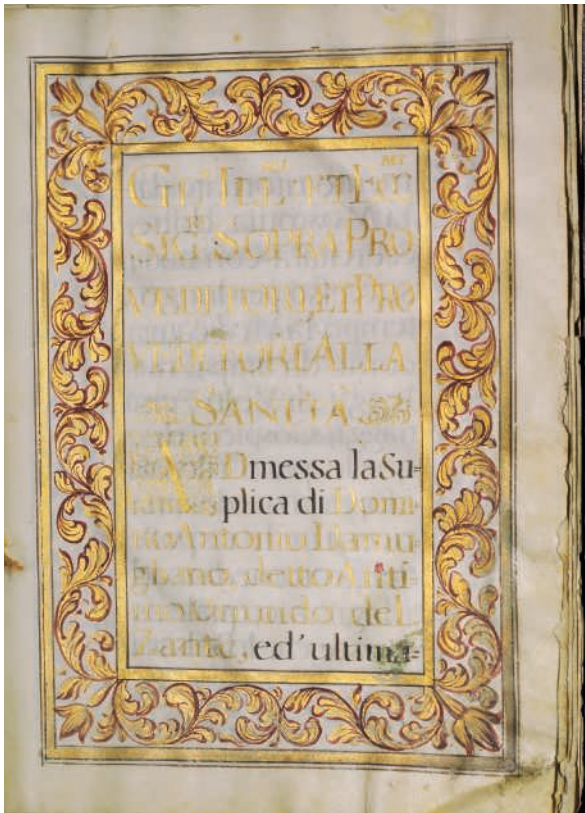 GL' ILL.MI ET ECC.MI
SIG.RI SOPRA PRO
VEDITORI, ET PRO
VEDITORI ALLA
SANITÀ
ADmessa la Su=
plica di Dom:
no Antonio Damu
gliano, detto Anti
mo Comurido del
Zante, ed' ultima=